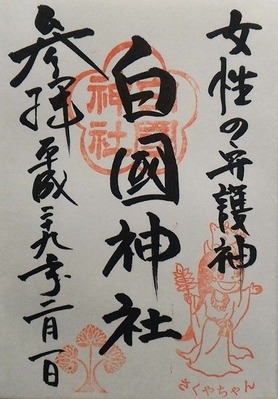 女性の守護神
白國神社
参拝
平成二十九年二月一日
白國
神社
さくやちゃん